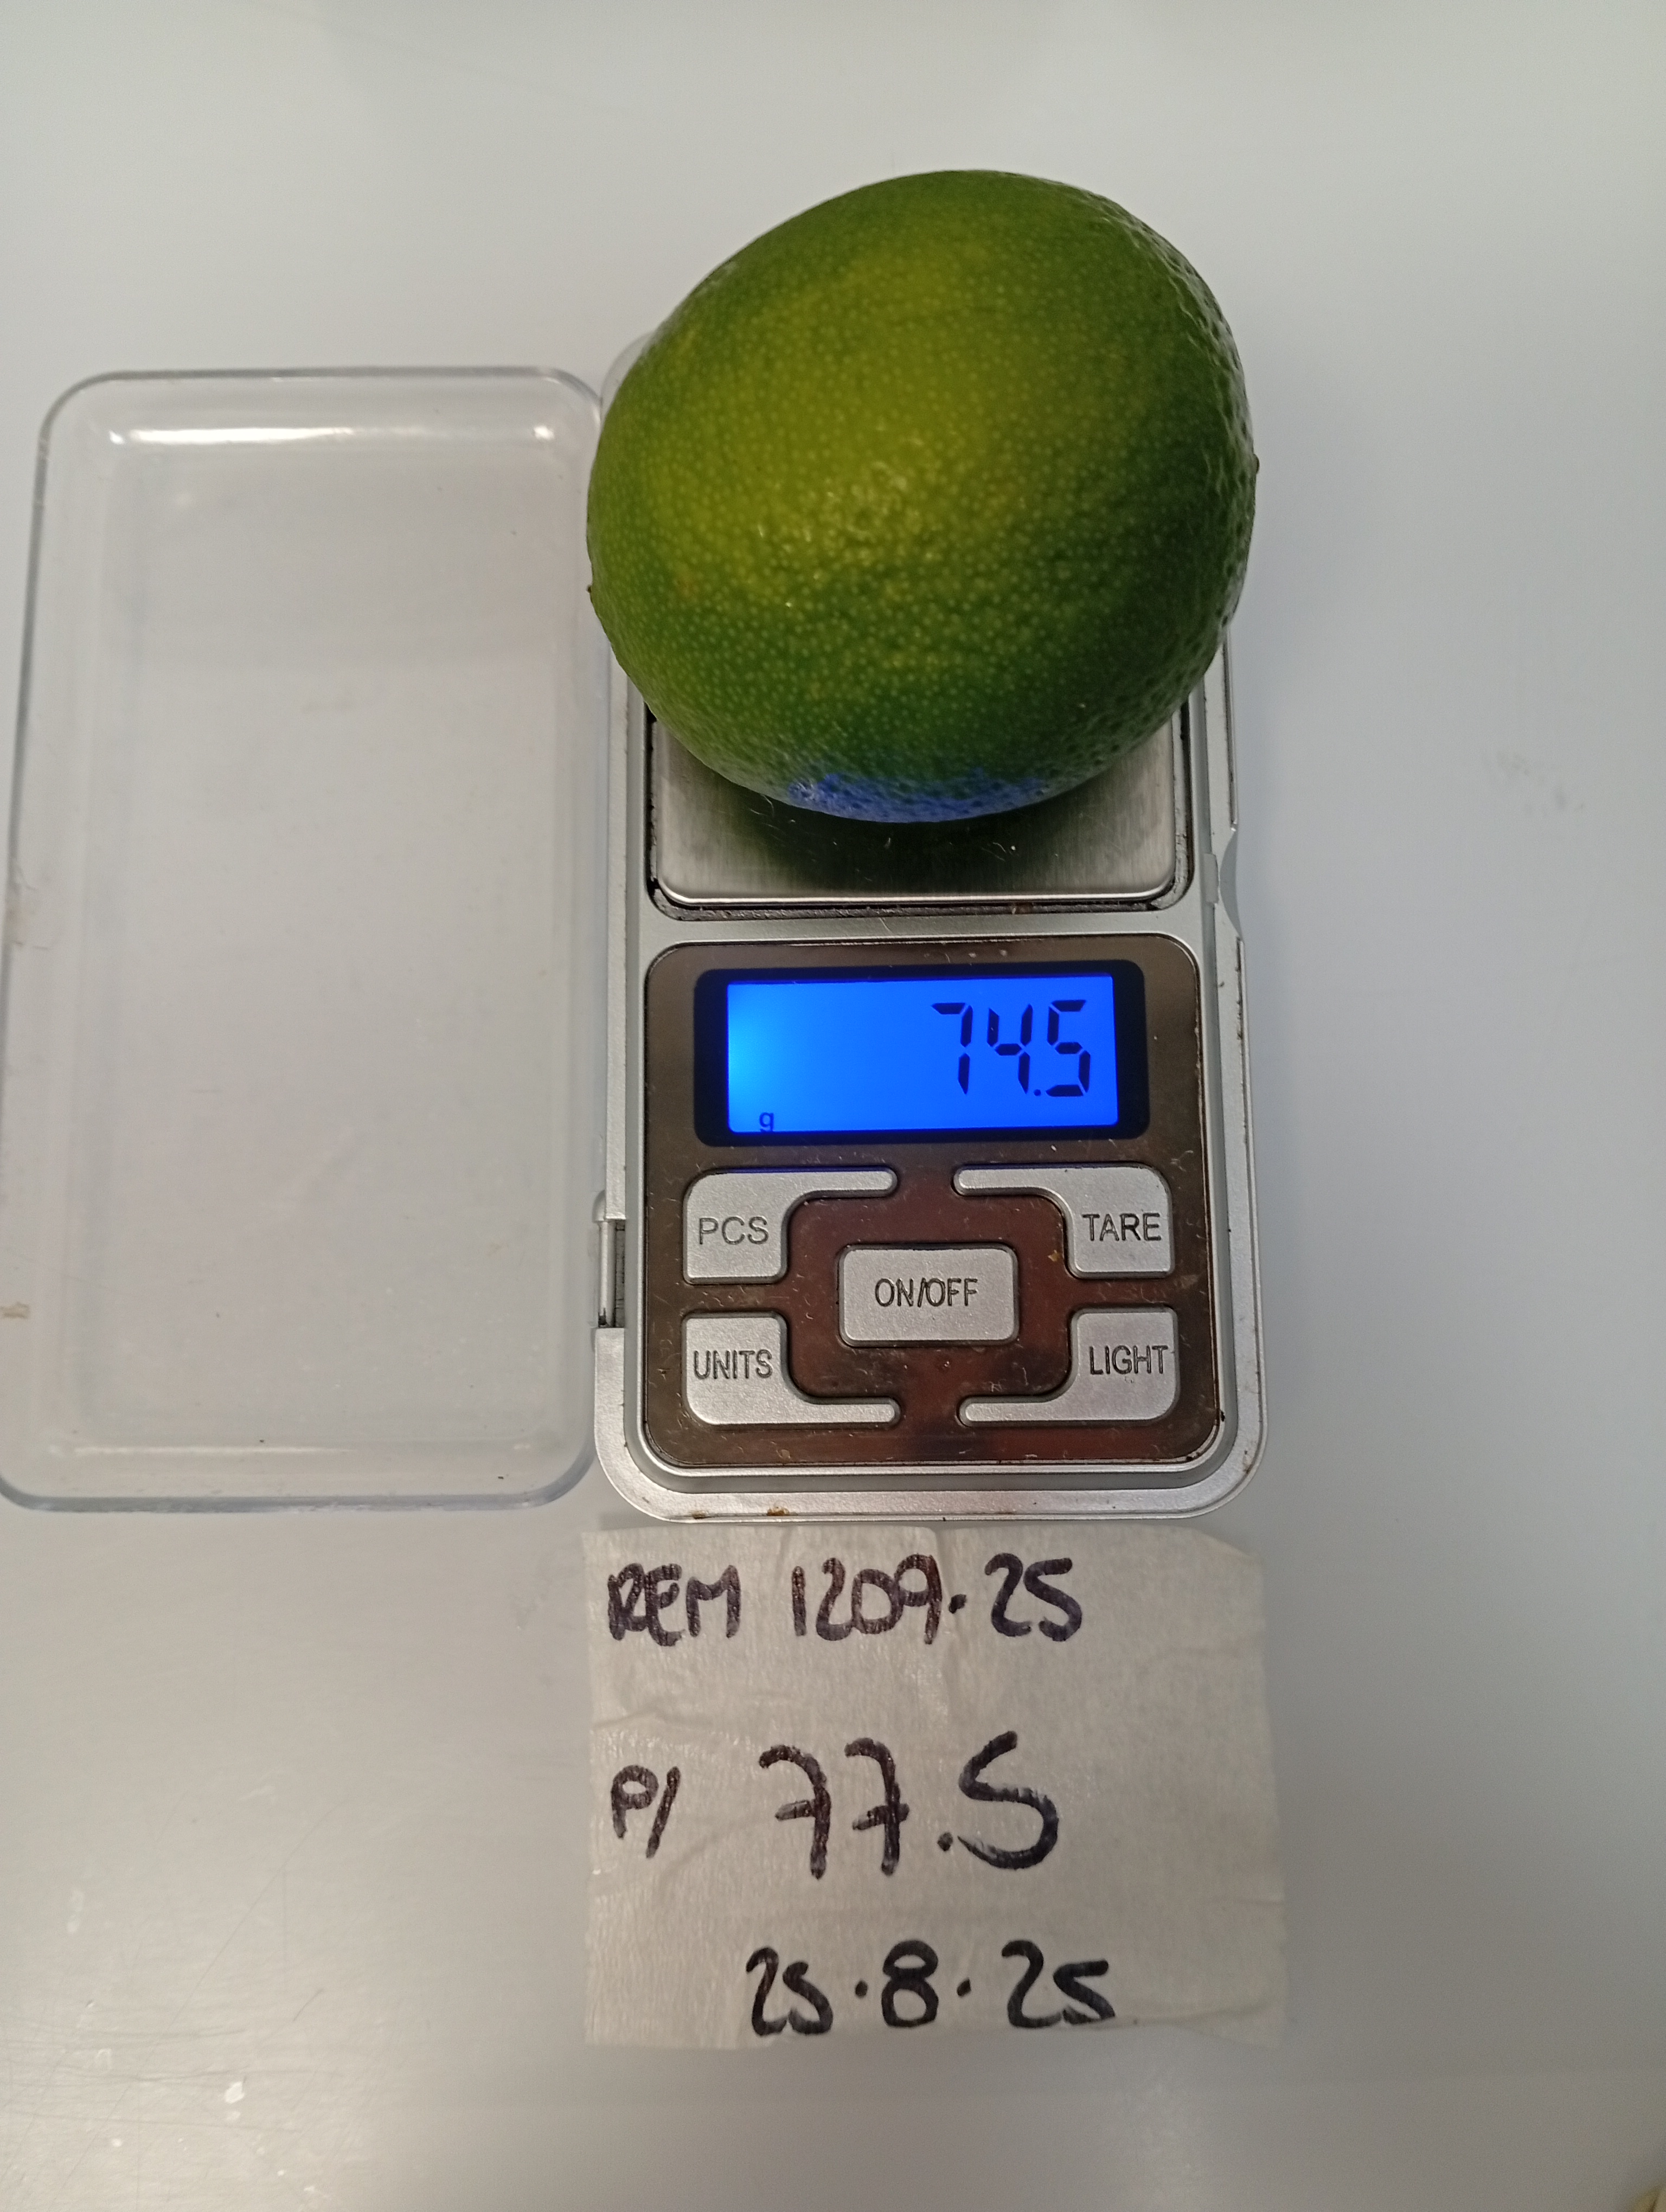 74.5
g
PCS
TARE
ON/OFF
UNITS
LIGHT
REM 1209.25
P/ 77.5
25.8.25